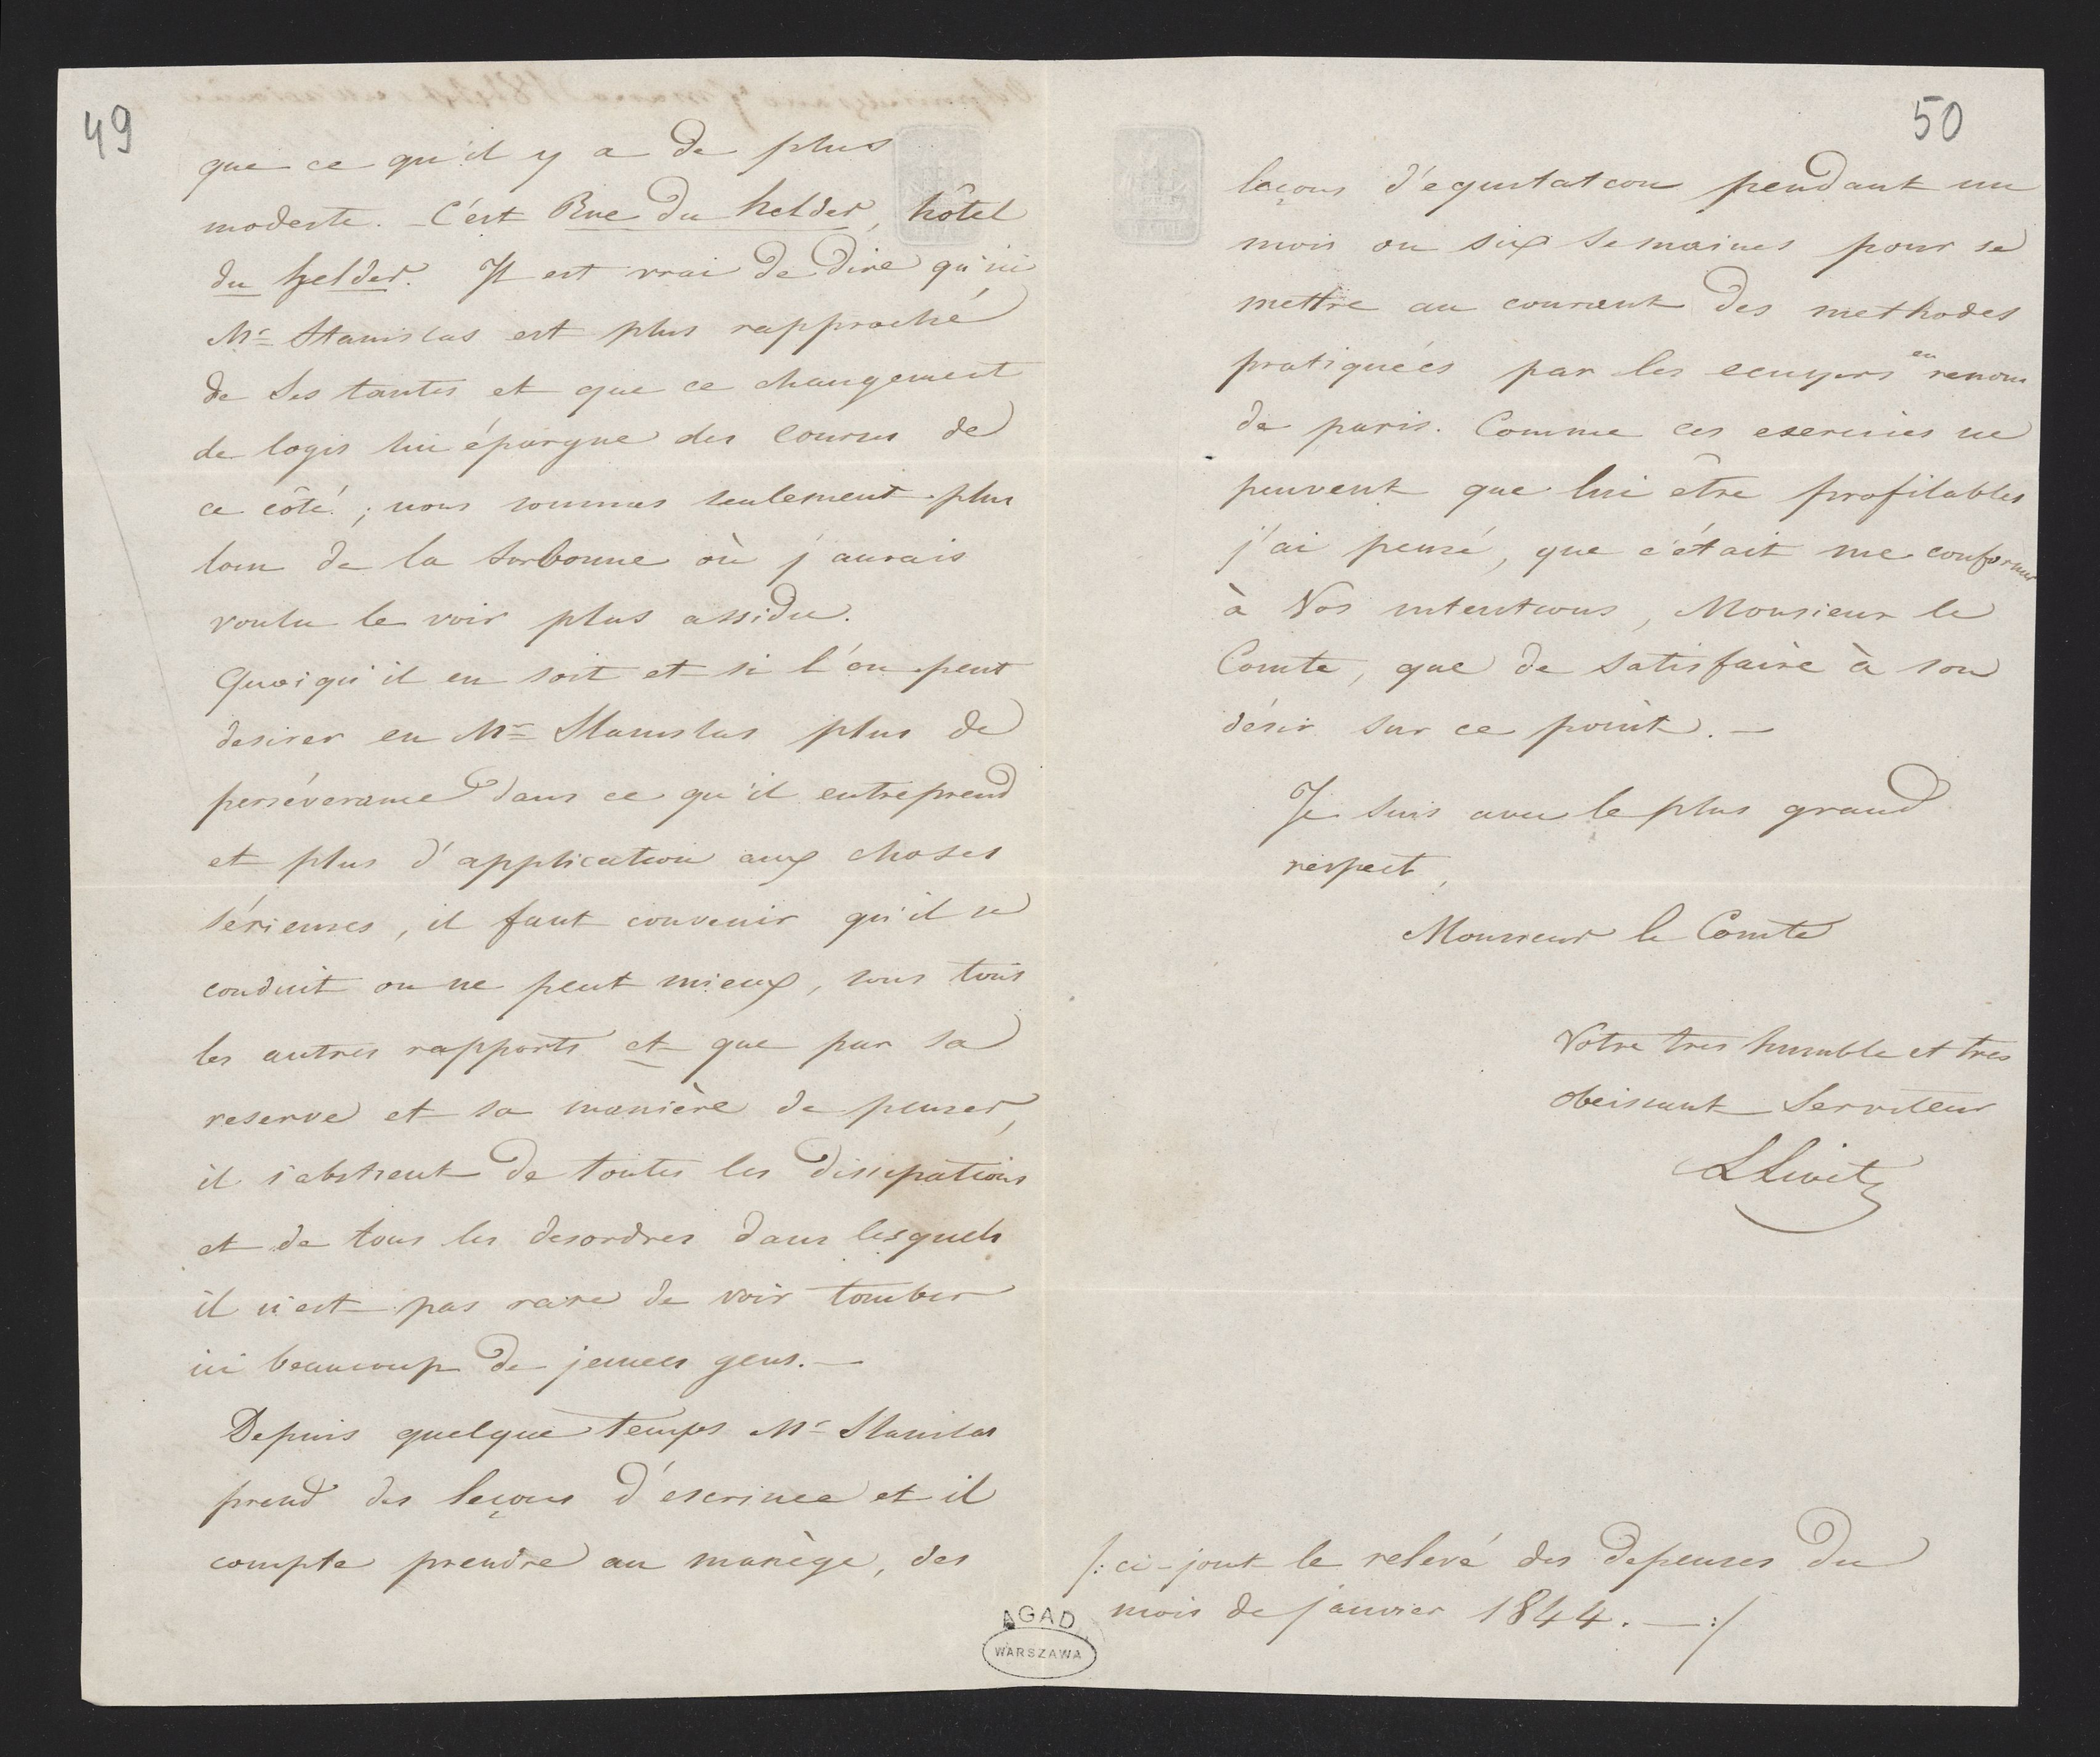 49
que ce qu'il y a de plus
modeste. - C'est Rue du helder, hôtel
du helder. Il est vrai de dire qu'ici
Mr Stanislas est plus rapproché
de ses tantes et que ce changement
de logis lui épargne des courses de
ce côté ; nous sommes seulement plus
loin de la Sorbonne où j'aurais
voulu le voir plus assidu.
Quoiqu'il en soit et si l'on peut
desirer en Mr Stanislas plus de
persévérance dans ce qu'il entreprend
et plus d'application aux choses
sérieuses, il faut convenir qu'il se
conduit on ne peut mieux, sous tous
les autres rapports et que par sa
reserve et sa manière de penser,
il s'abstient de toutes les dissipations
et de tous les desordres dans lesquels
il n'est pas rare de voir tomber
ici beaucoup de jeunes gens. —
Depuis quelque temps Mr Stanislas
prend des leçons d'escrime et il
compte prendre au manège, des
50
leçons d'equitation pendant un
mois ou six semaines pour se
mettre au courant des methodes
pratiquées par les ecuyers en renom
de paris. Comme ces exercices ne
peuvent que lui être profitables
j'ai pensé, que c'était me conformer
à Vos intentions, Monsieur le
Comte, que de satisfaire à son
désir sur ce point. —
Je suis avec le plus grand
respect,
Monsieur le Comte
Votre tres humble et tres
obeissant Serviteur
/: ci-joint le relevé des depenses du
mois de janvier 1844. — :/
AGAD
WARSZAWA